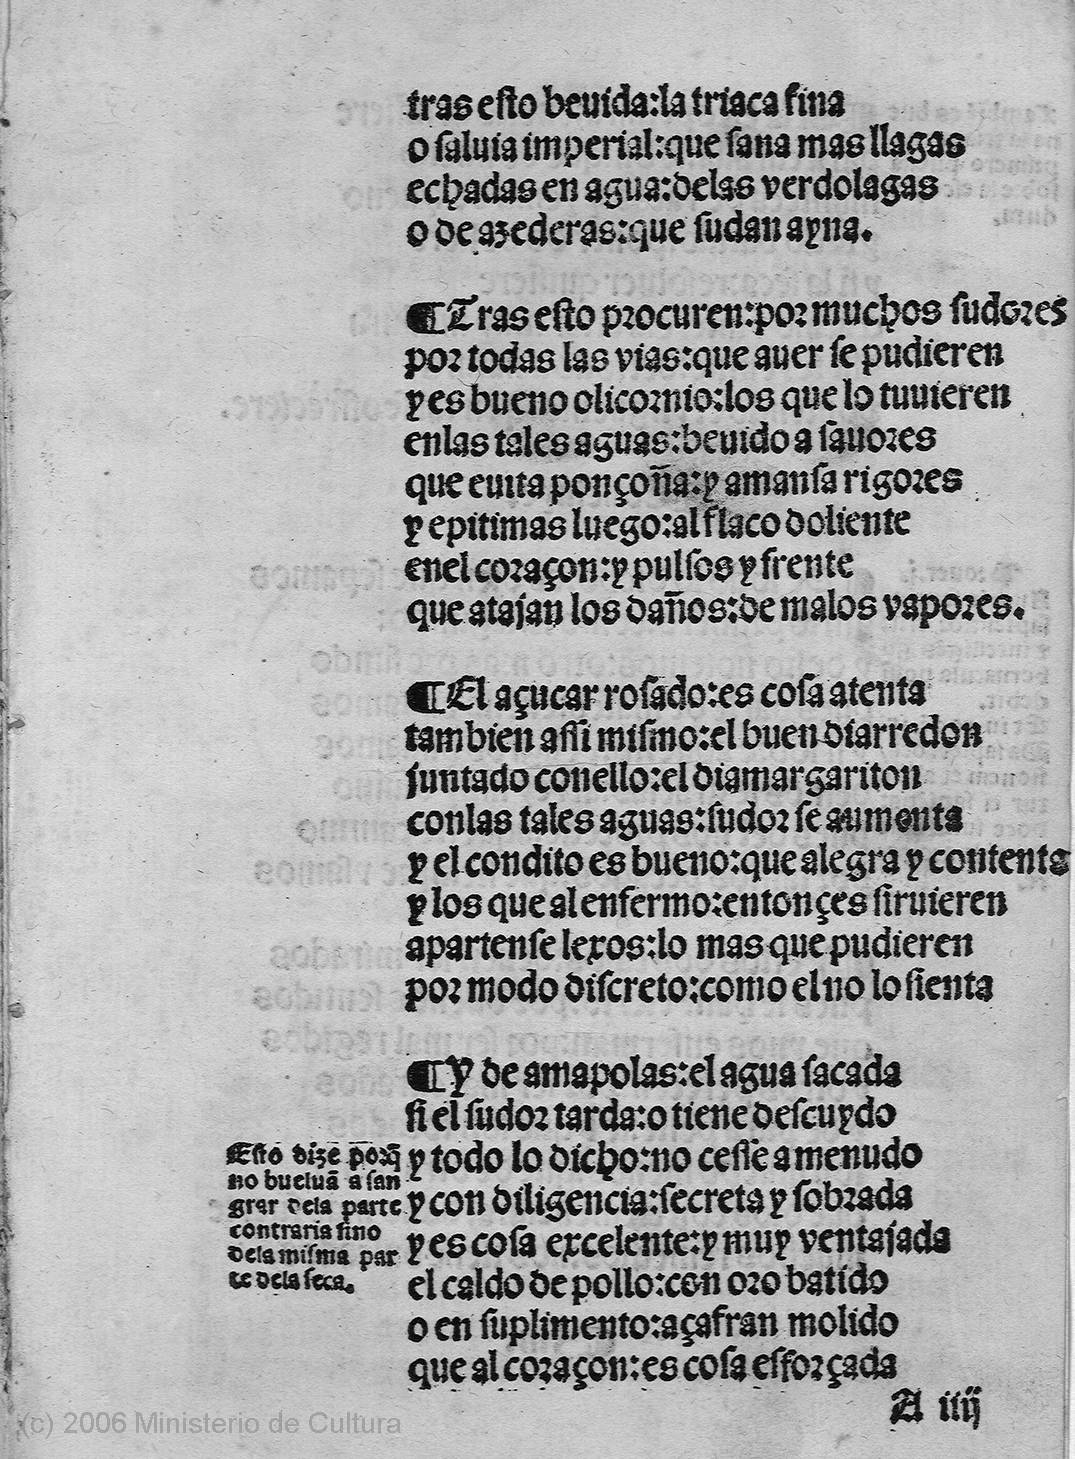 tras esto beuida:la triaca fina
o saluia imperial:que sana mas llagas
echadas en agua:delas verdolagas
o de azederas:que sudan ayna.
¶Tras esto procuren:por muchos sudores
por todas las vias:que auer se pudieren
y es bueno olicornio:los que lo tuuieren
enlas tales aguas:beuido a sauores
que euita ponçoña:y amansa rigores
y epitimas luego:al flaco doliente
enel coraçon:y pulsos y frente
que atajan los daños:de malos vapores.
¶El açucar rosado:es cosa atenta
tambien assi mismo:el buen diarredon
juntado conello:el diamargariton
conlas tales aguas:sudor se aumenta
y el condito es bueno:que alegra y contenta
y los que al enfermo:entonçes siruieren
apartense lexos:lo mas que pudieren
por modo discreto:como el no lo sienta
¶Y de amapolas:el agua sacada
si el sudor tarda:o tiene descuydo
y todo lo dicho:no cesse a menudo
y con diligencia:secreta y sobrada
y es cosa excelente:y muy ventajada
el caldo de pollo:con oro batido
o en suplimento:açafran molido
que al coraçon:es cosa esforçada
Esto dize porq̃
no bueluã a san
grar dela parte
contraria sino
dela misma par
te dela seca.
A iiij
(c) 2006 Ministerio de Cultura